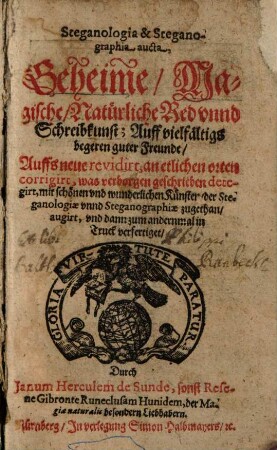 Steganologia & Stegano-
graphia aucta,
Geheime/ Ma-
gische/ Natürliche Red vnnd
Schreibkunst; Auff vielfältigs
begeren guter Freunde/
Auffs neue revidirt, an etlichen orten
corrigirt, was verborgen geschrieben dete-
girt, mit schönen vnd wunderlichen Künsten der Ste-
ganologiæ vnnd Steganographiæ zugethan/
augirt, vnd dann zum andernmal in
Truck verfertiget/
VIRTUTE
GLORIA
PARATUR
Durch
Janum Herculem de Sunde, sonst Rese-
ne Gibronte Runeclusam Hunidem, der Ma-
giæ naturalis besondern Liebhabern.
Nürnberg/ In verlegung Simon Halbmayers/ ꝛc.